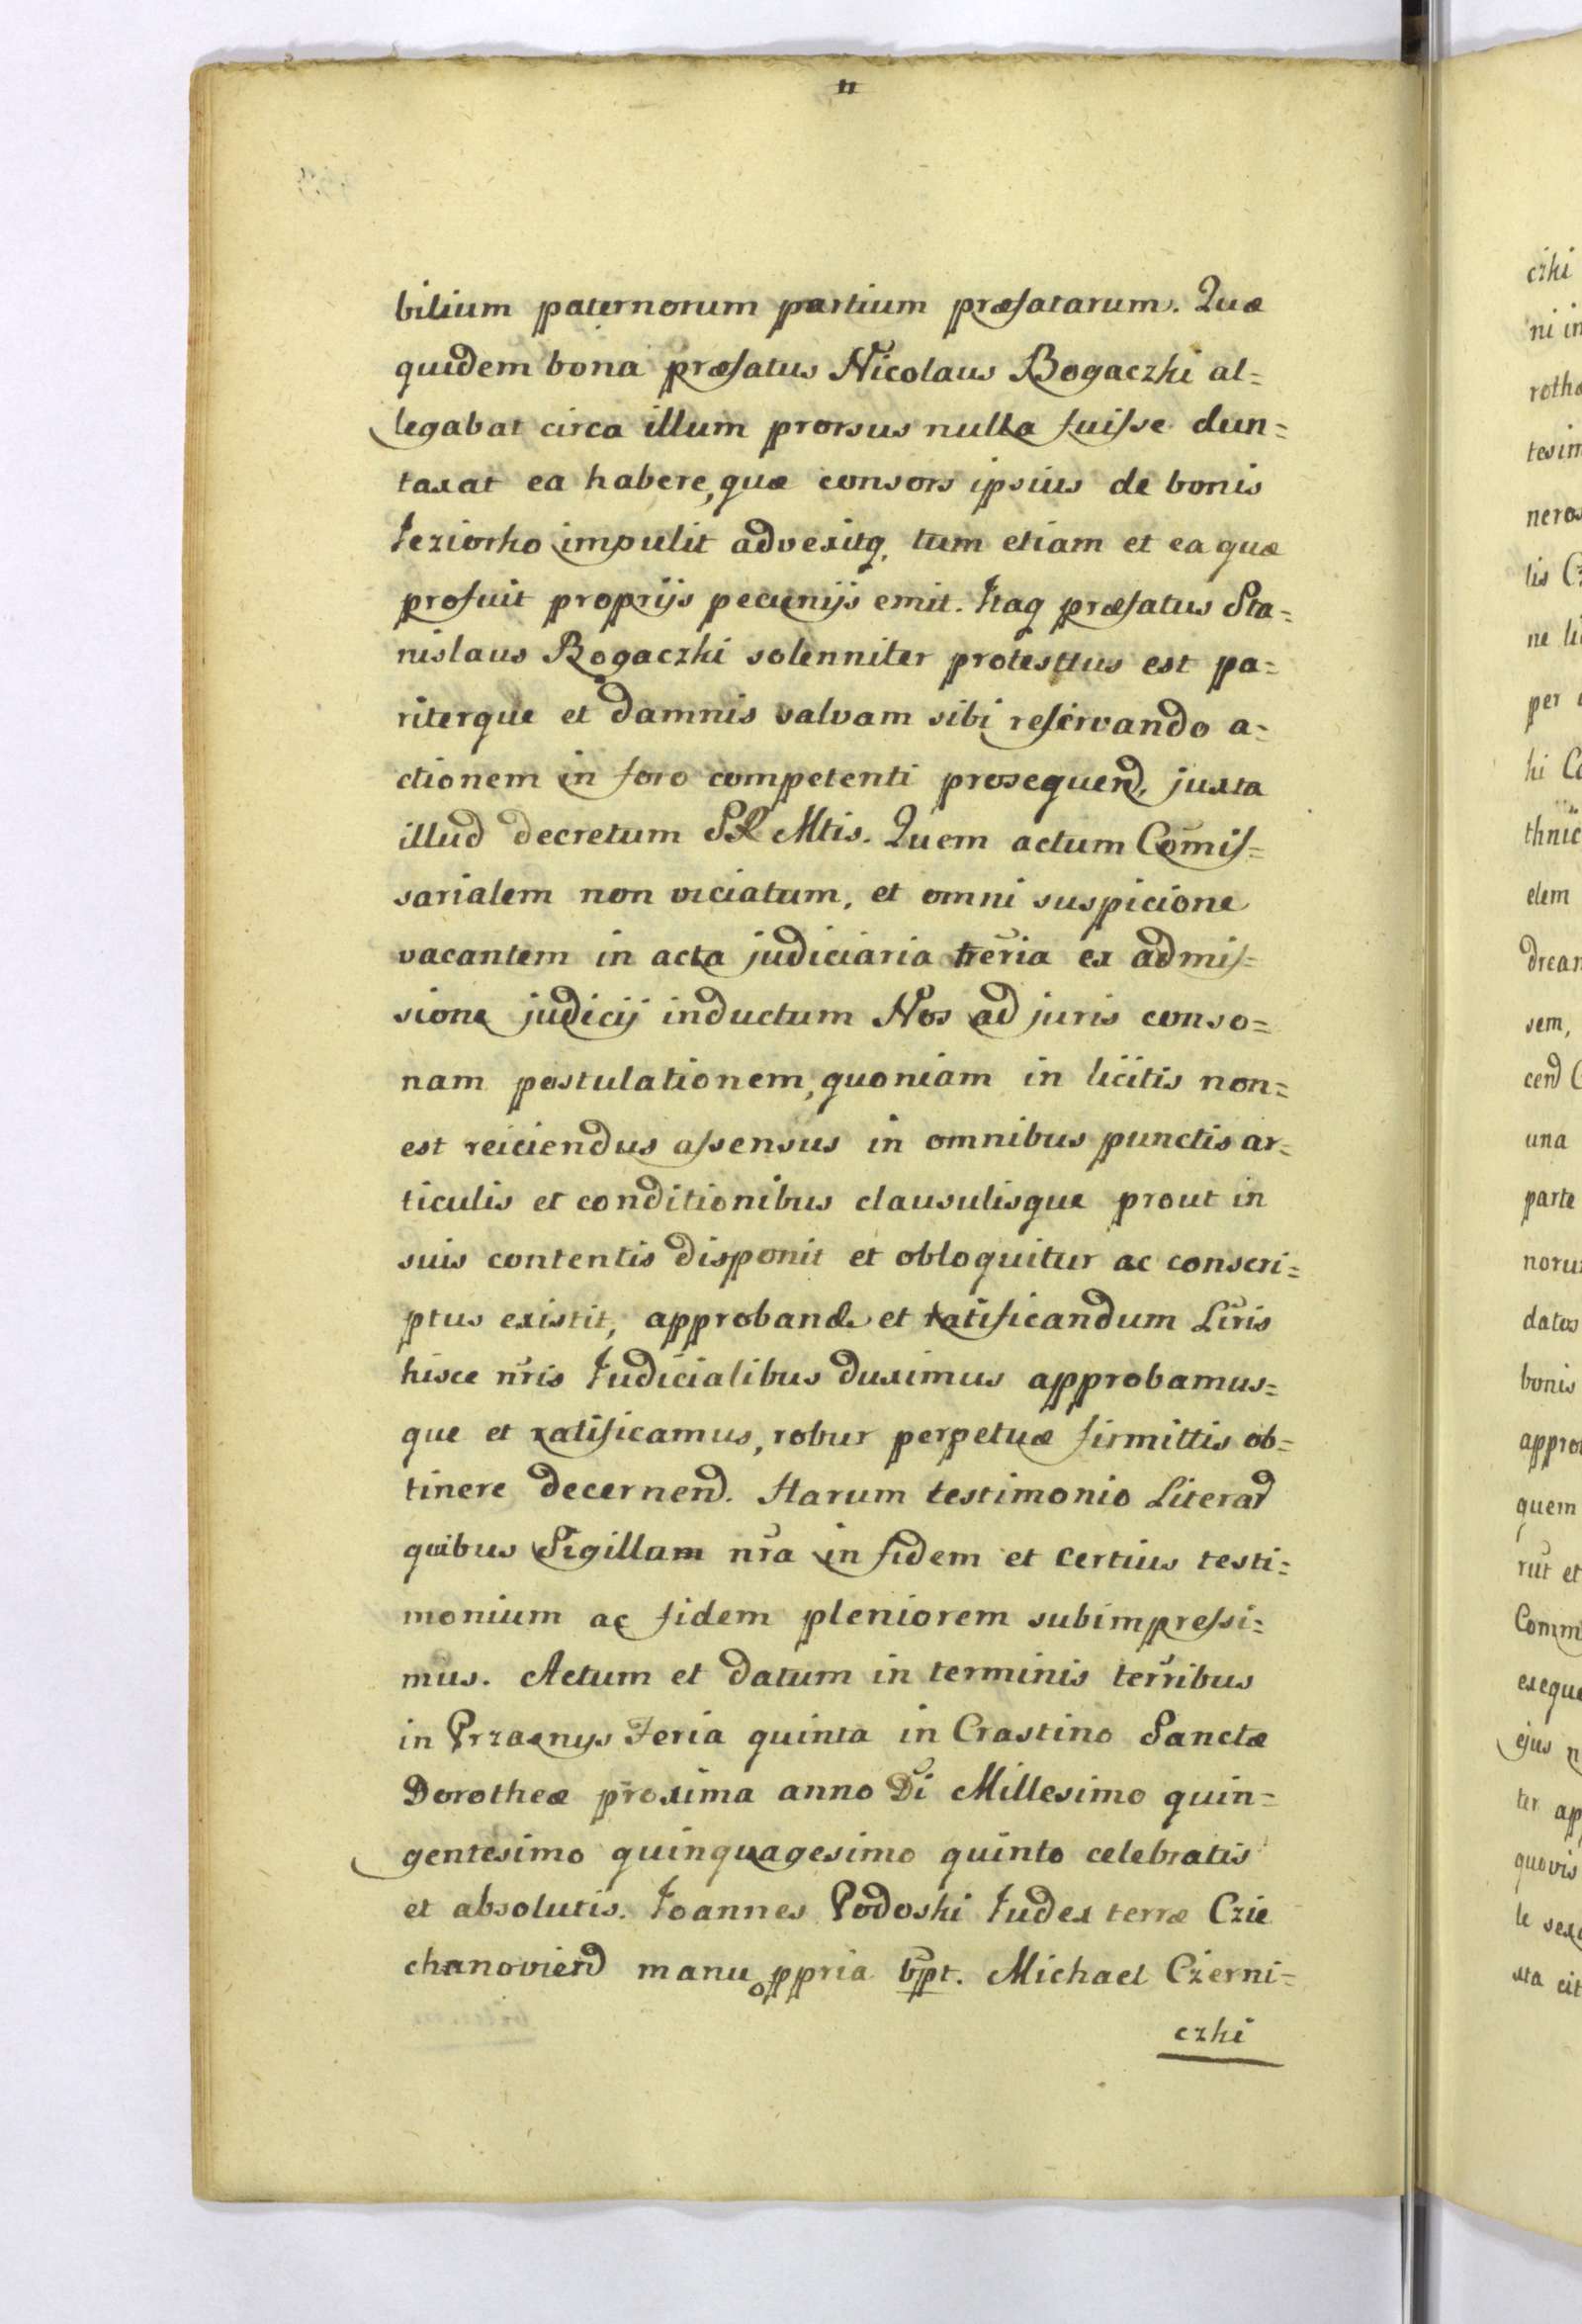 bilium paternorum partium præfatarum. Quæ
quidem bona præfatus Nicolaus Bogaczki al=
legabat circa illum prorsus nulla fuisse dun=
taxat ea habere, quæ consors ipsius de bonis
Jeziorko impulit advexitq, tum etiam et ea quæ
profuit proprijs pecunijs emit. Itaq præfatus Sta=
nislaus Bogaczki solenniter protesttus est pa=
riterque et damnis salvam sibi reservando a=
ctionem in foro competenti prosequend, juxta
illud decretum SR Mtis. Quem actum Comis=
sarialem non viciatum, et omni suspicione
vacantem in acta judiciaria treria ex admis=
sione judicij inductum Nos ad juris conso=
nam postulationem, quoniam in licitis non=
est reiciendus assensus in omnibus punctis ar=
ticulis et conditionibus clausulisque prout in
suis contentis disponit et obloquitur ac conscri=
ptus existit, approband et ratificandum Lris
hisce nris Judicialibus duximus approbamus=
que et ratificamus, robur perpetuæ firmittis ob=
tinere decernend. Harum testimonio Literad
quibus Sigillam nra in fidem et certius testi=
monium ac fidem pleniorem subimpressi=
mus. Actum et datum in terminis terribus
in Przasnys Feria quinta in Crastino Sanctæ
Dorotheæ proxima anno Di Millesimo quin=
gentesimo quinquagesimo quinto celebratis
et absolutis. Joannes Podoski Judex terræ Czie
chanoviend manu ppria spt. Michael Czerni=
czki
czki
ni in
per
hi
elem
sem,
una
parte
datos
bonis
quem
ejus
quovis